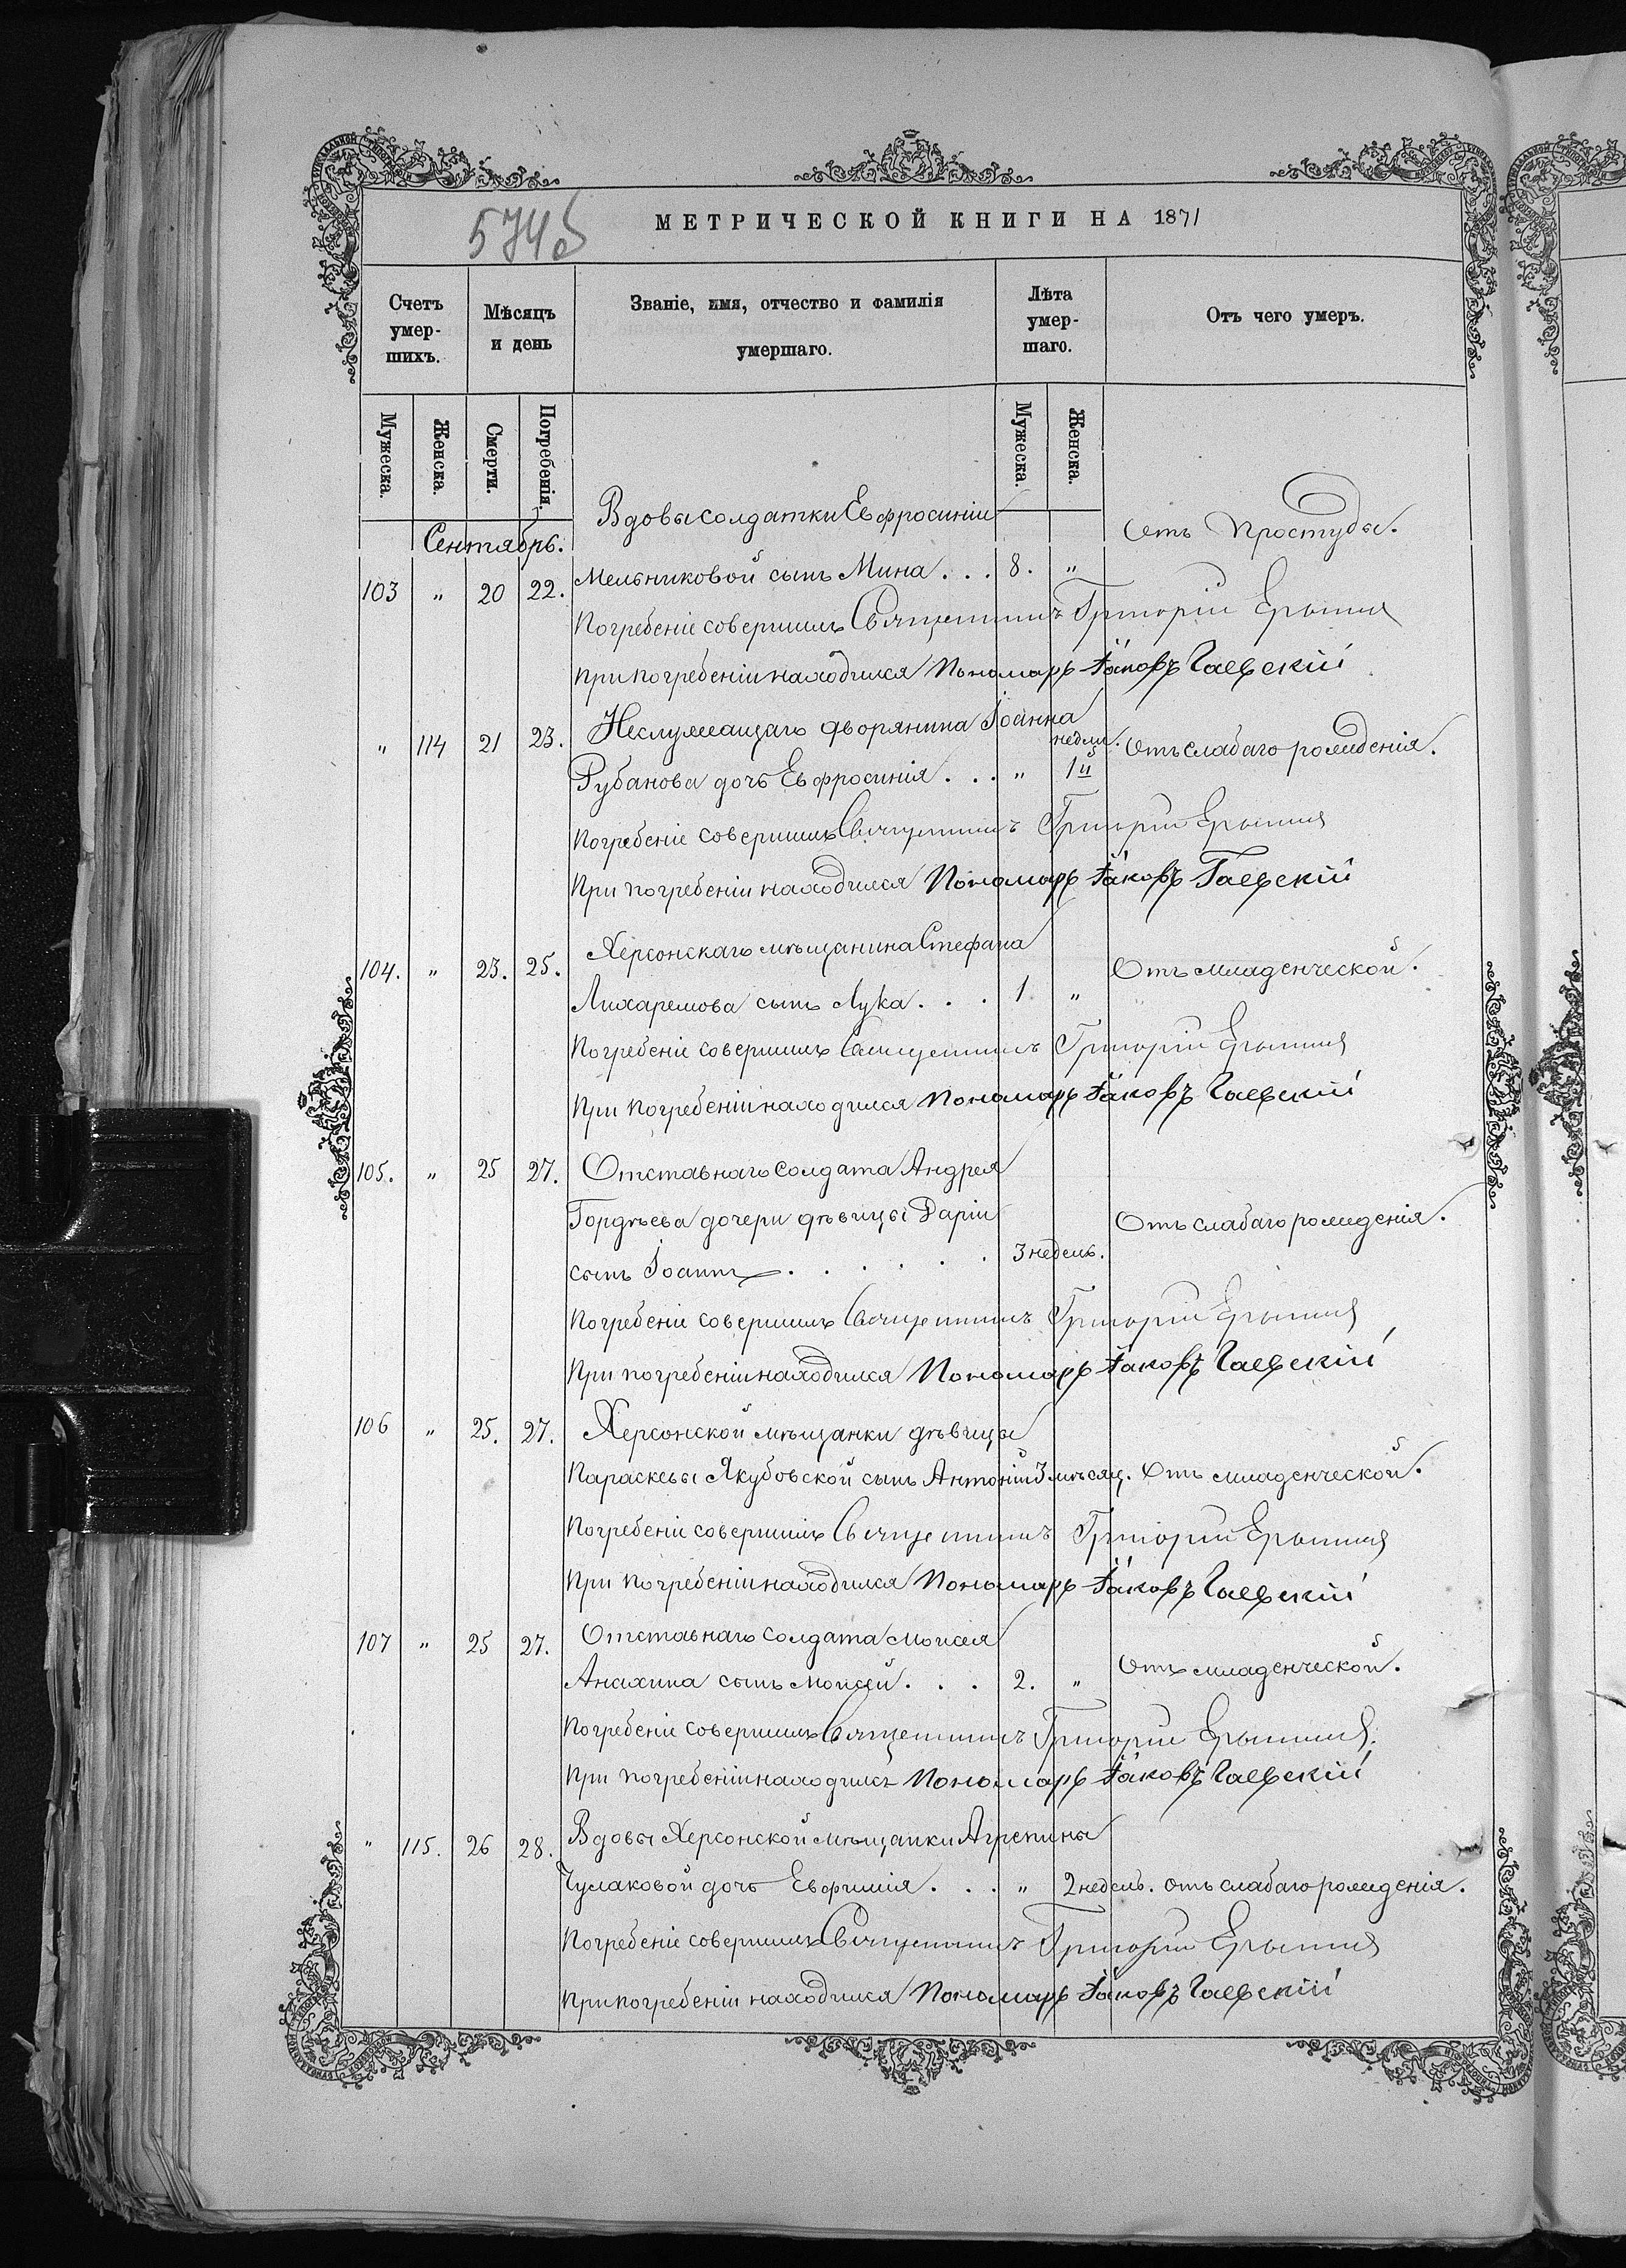 574об
МЕТРИЧЕСКОЙ КНИГИ НА 1871
Счетъ умер-шихъ.
Мѣсяцъ и день
Званіе, имя, отчество и фамилія умершаго.
Лѣта умер-шаго.
Отъ чего умеръ.
Мужеска.
Женска.
Смерти.
Погребенія.
Мужеска.
Женска.
Сентябрь.
Вдовы солдатки Евфросиніи
Отъ простуды.
103 " 20 22. Мельниковой сынъ Мина . . . 8. "
Погребеніе совершилъ Священникъ Григорій
При погребеніи находился Пономарь Іаковъ Гаевскій
" 114 21 23. Неслужащаго дворянина Іоанна
Рубанова дочь Евфросинія . . . " 1й недели. Отъ слабаго рожденія.
Погребеніе совершилъ Священникъ Григорій
При погребеніи находился Пономарь Іаковъ Гаевскій
104. " 23. 25. Херсонскаго мѣщанина Стефана
Отъ младенческой.
сынъ Лука . . . 1 "
Погребеніе совершилъ Священникъ Григорій
При погребеніи находился Пономарь Іаковъ Гаевскій
105. " 25 27. Отставнаго солдата Андрея
Гордѣева дочери дѣвицы Даріи
Отъ слабаго рожденія.
сынъ Іоаннъ . . . . . . 3 недель.
Погребеніе совершилъ Священникъ Григорій
При погребеніи находился Пономарь Іаковъ Гаевскій
106 " 25. 27. Херсонской мѣщанки дѣвицы
Параскевы Якубовской сынъ Антоній 3 мѣсяц. Отъ младенческой.
Погребеніе совершилъ Священникъ Григорій
При погребеніи находился Пономарь Іаковъ Гаевскій
107 " 25 27. Отставнаго солдата Моисея
Анахина сынъ Моисей . . . 2. " Отъ младенческой.
Погребеніе совершилъ Священникъ Григорій
При погребеніи находился Пономарь Іаковъ Гаевскій
" 115. 26 28. Вдовы Херсонской мѣщанки Агрепины
Чумаковой дочь Евфимія . . . " 2 недель. отъ слабаго рожденія.
Погребеніе совершилъ Священникъ Григорій
При погребеніи находился Пономарь Іаковъ Гаевскій